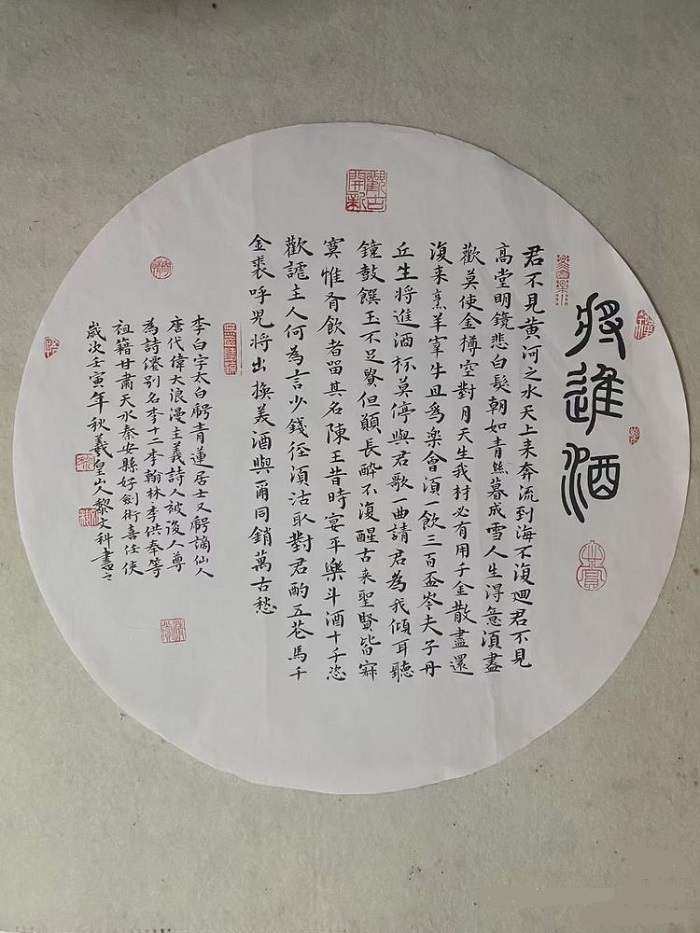 將進酒
君不見黄河之水天上来奔流到海不復迴君不見
高堂明鏡悲白髮朝如青絲暮成雪人生得意須盡
歡莫使金樽空對月天生我材必有用千金散盡還
復来烹羊宰牛且為樂會須一飲三百盃岑夫子丹
丘生將進酒杯莫停與君歌一曲請君為我傾耳聽
鐘鼓饌玉不足貴但願長醉不復醒古来聖賢皆寂
寞惟有飲者留其名陳王昔時宴平樂斗酒十千恣
歡謔主人何為言少錢径須沽取對君酌五花馬千
金裘呼兒將出換美酒與爾同銷萬古愁
李白字太白號青蓮居士又號謫仙人
唐代偉大浪漫主義詩人被後人尊
為詩僊别名李十二李翰林李供奉等
祖籍甘肅天水秦安縣好劍術喜任俠
歲次壬寅年秋羲皇山人黎文科書
觀古開新